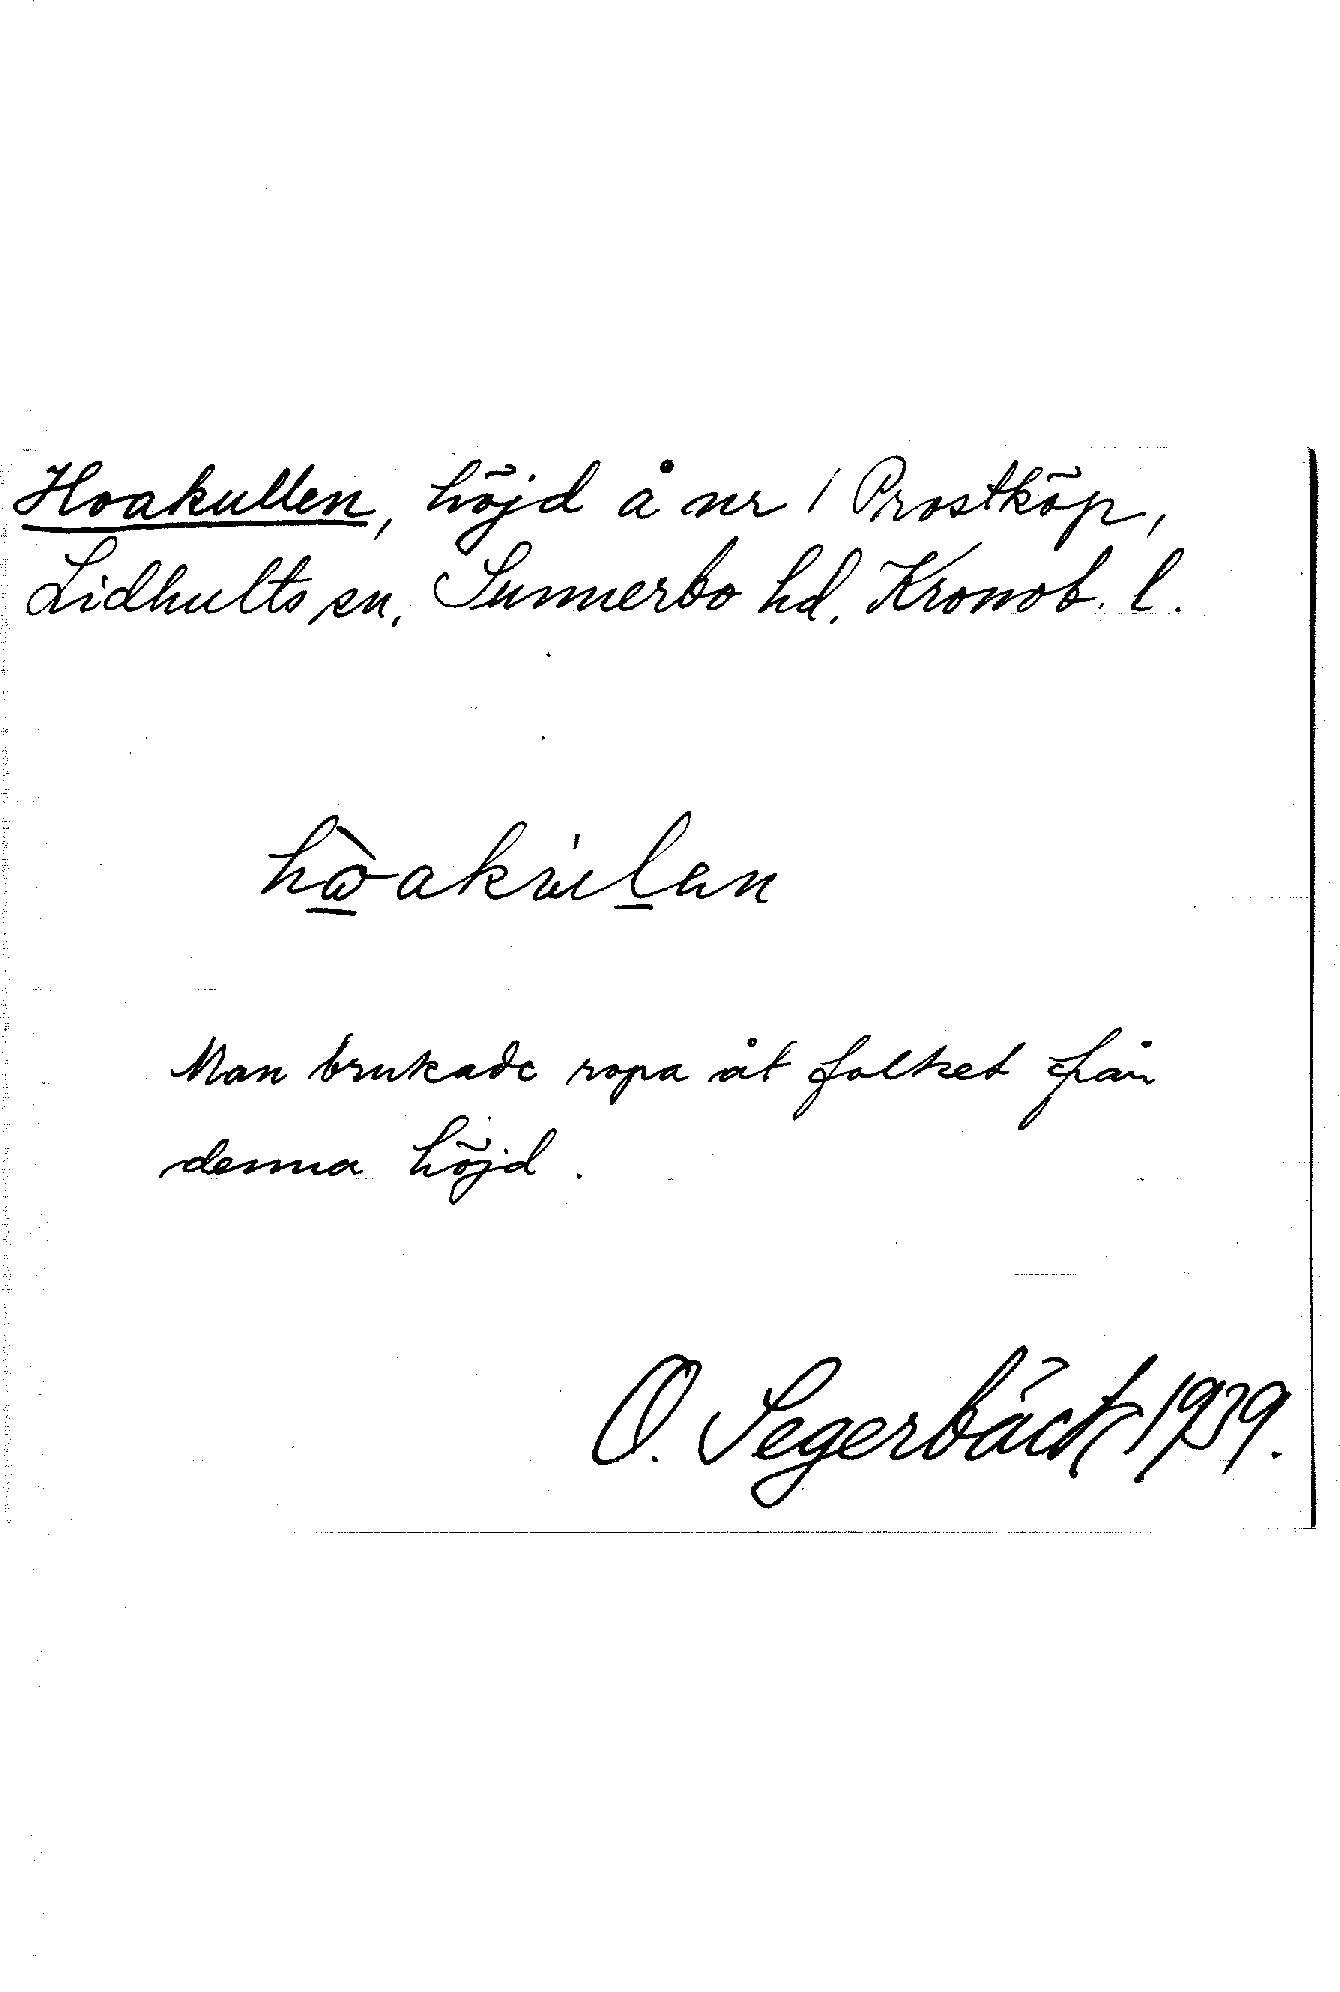 Hoakullen, höjd å nr 1 Prostköp,
Lidhults sn, Sunnerbo hd, Kronob. l.
Man brukade ropa åt folket från
denna höjd.
O. Segerbäck 1939.